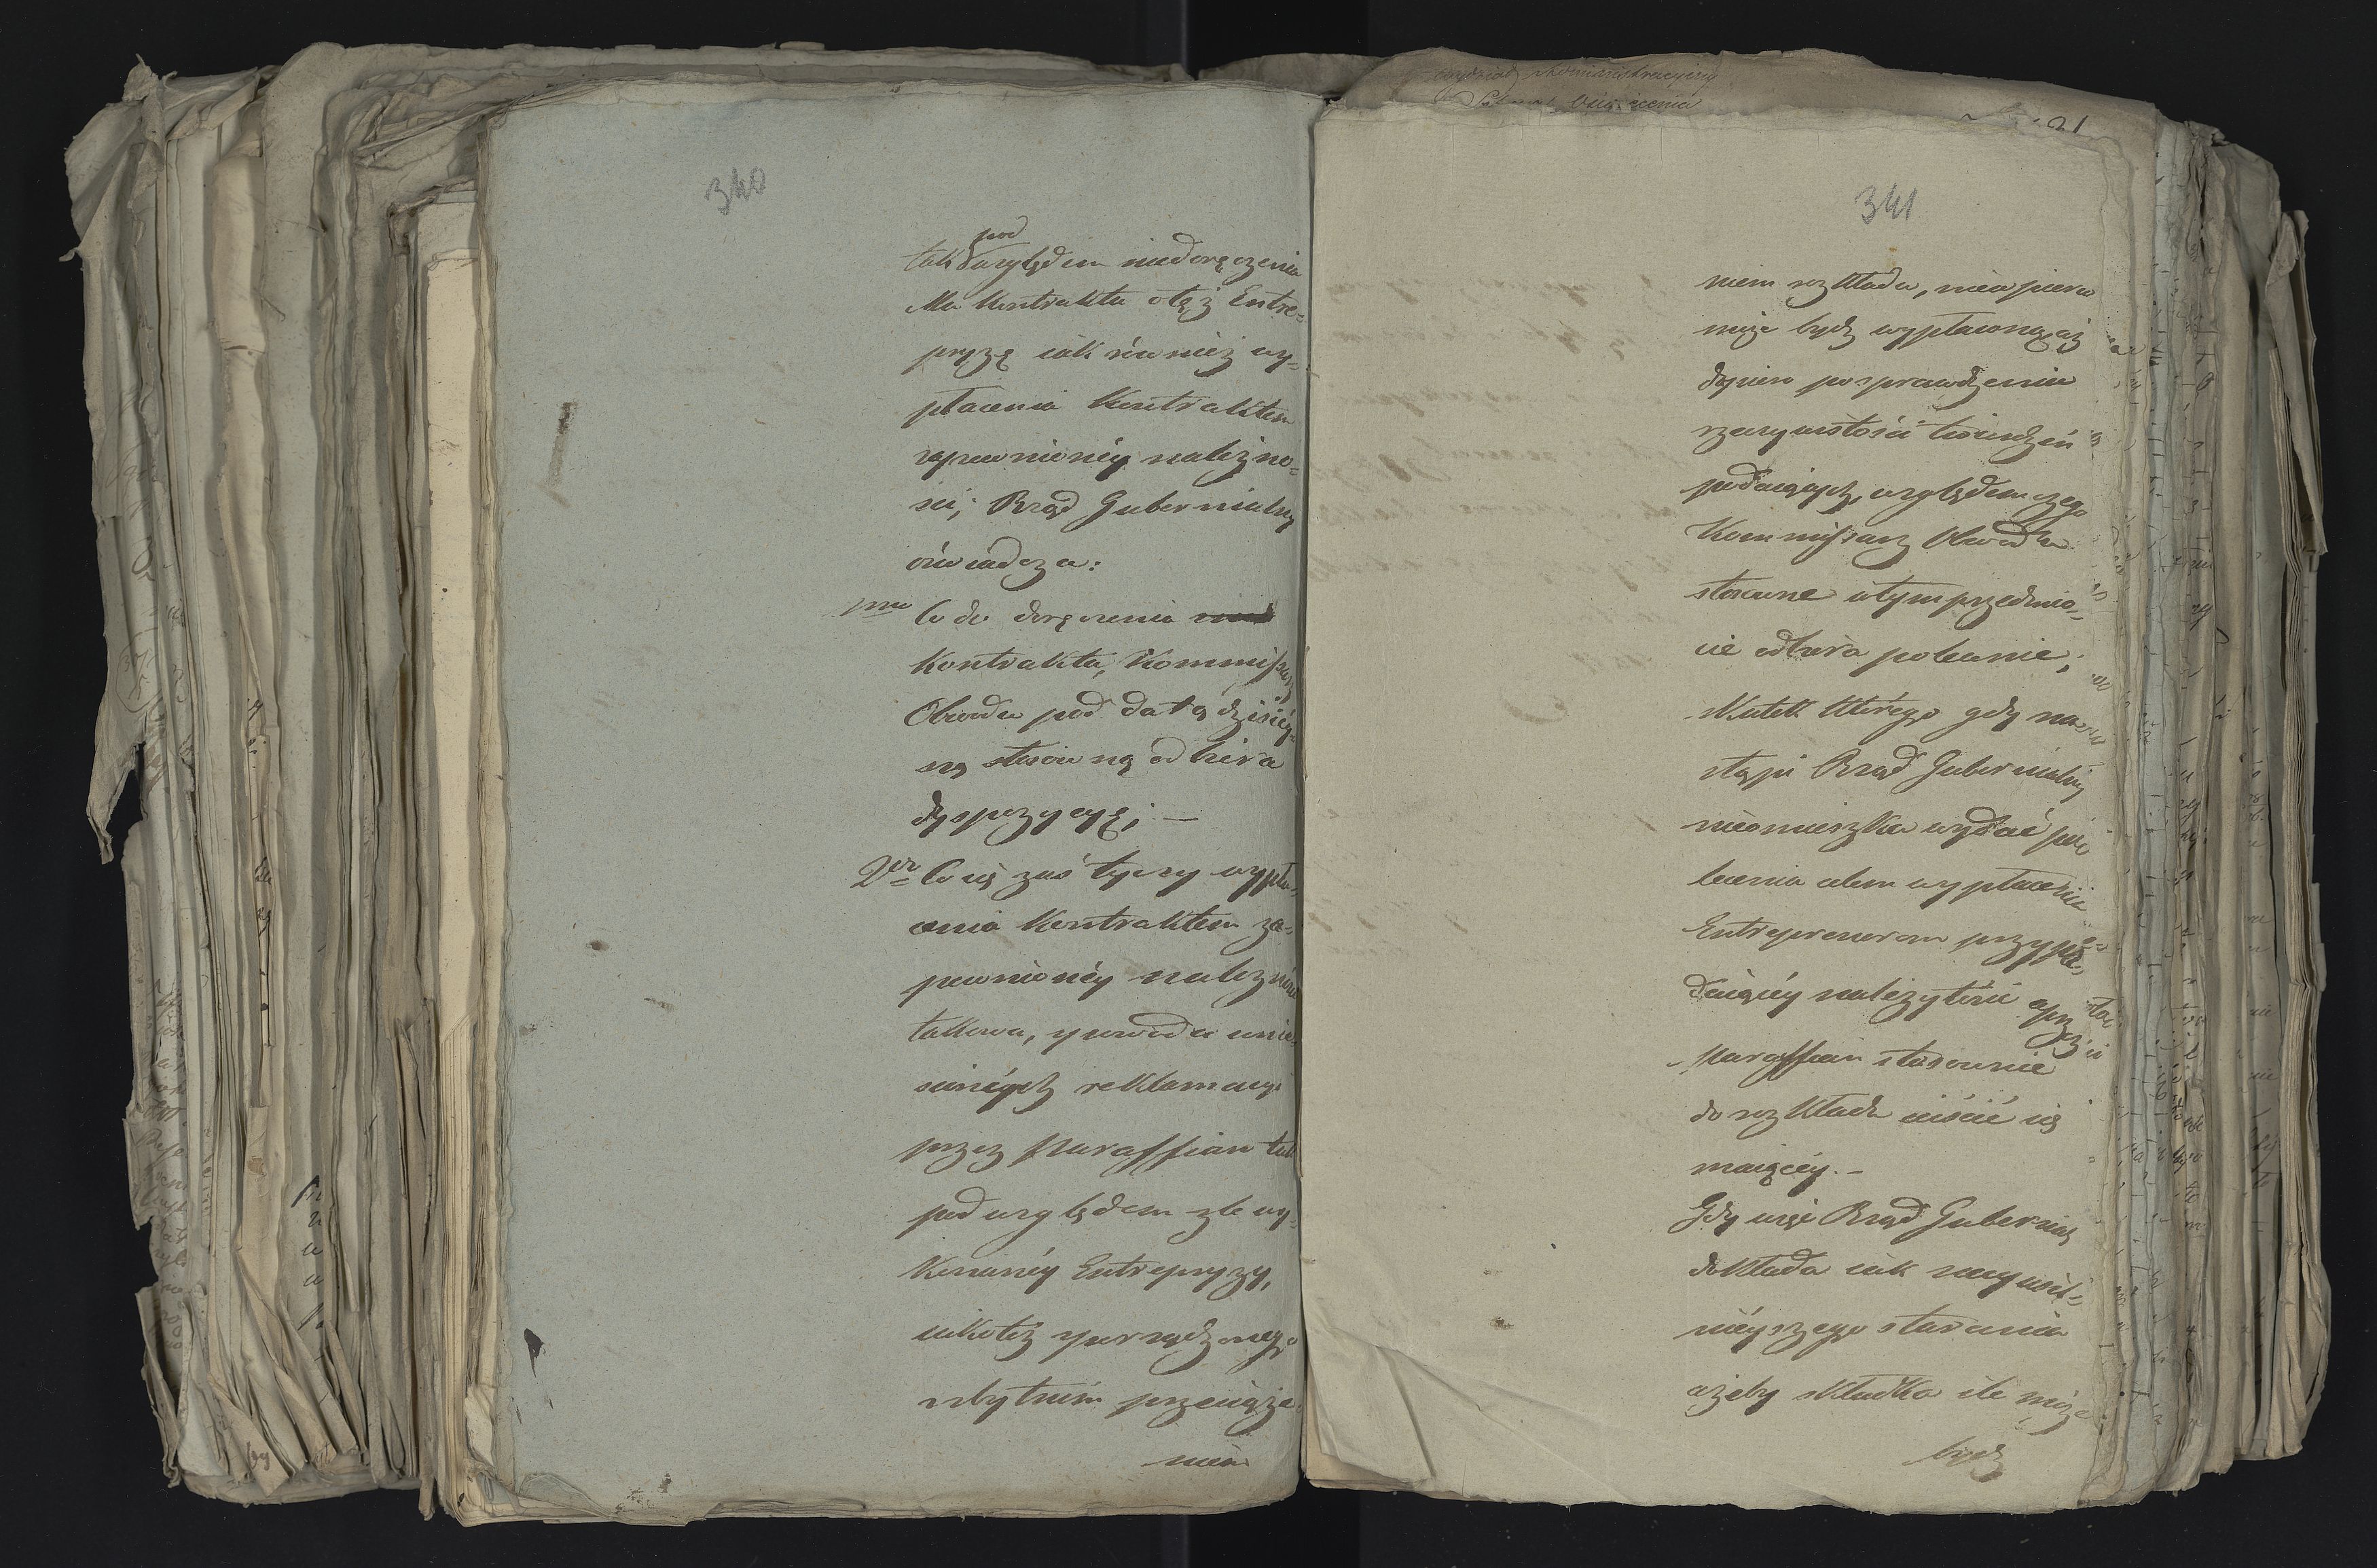 340
pod
tak względem niedoręczenia
Mu Kontraktu o tęż Entre=
pryzę iak również wy=
płacenia Kontraktem
zapewnionéy należno=
ści; Rząd Gubernialny
oświadcza:
1mo Co do doręczenia
Kontraktu, Kommissarz
Obwodu pod datą dzisiéy=
szą stosowną odbiera
dyspozycyę; —
2do Co się zaś tyczy wypła=
cenia Kontraktem za=
pewnionéy należności
takowa, z powodu wnie=
sionych reklamacyi
przez Paraffian tak
pod względem źle wy=
konanéy Entrepryzy,
iakoteż zporządzonego
zbytniém przeciąże=
niem
341
niem rozkładu, nie pierw
może bydź wypłaconą, aż
dopiero po sprawdzeniu
rzeczywistości twierdzeń
podaiących, względem czego
Kommissarz Obwodu
stosowne w tym przedmio=
cie odbiera polecenie;
skutek którego gdy na=
stąpi Rząd Gubernialny
nieomieszka wydać po=
lecenia celem wypłacenia
Entreprenerom przypa=
daiącéy należytości
Paraffian stosownie
do rozkładu iścić się
maiącéy. —
Gdy więc Rząd Gubernialny
dokłada iak
starania
ażeby składka ile może
bydź